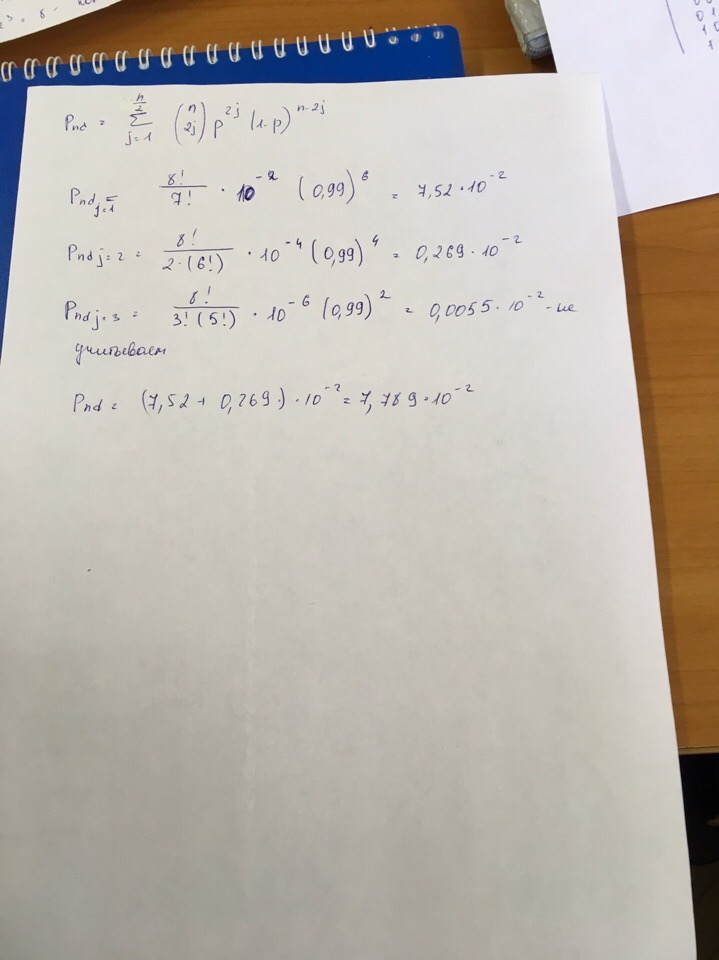 2³ = 8 -
0
0 1
1 0
1
n/2
P_nd = Σ (n 2j) p^2j (1-p)^n-2j
j=1
P_nd j=1 = 8!/7! · 10^-2 (0,99)^6 = 7,52 · 10^-2
P_nd j=2 = 8!/2·(6!) · 10^-4 (0,99)^4 = 0,269 · 10^-2
P_nd j=3 = 8!/3!(5!) · 10^-6 (0,99)^2 = 0,0055 · 10^-2 - не
учитываем
P_nd = (7,52 + 0,269) · 10^-2 = 7,789 · 10^-2